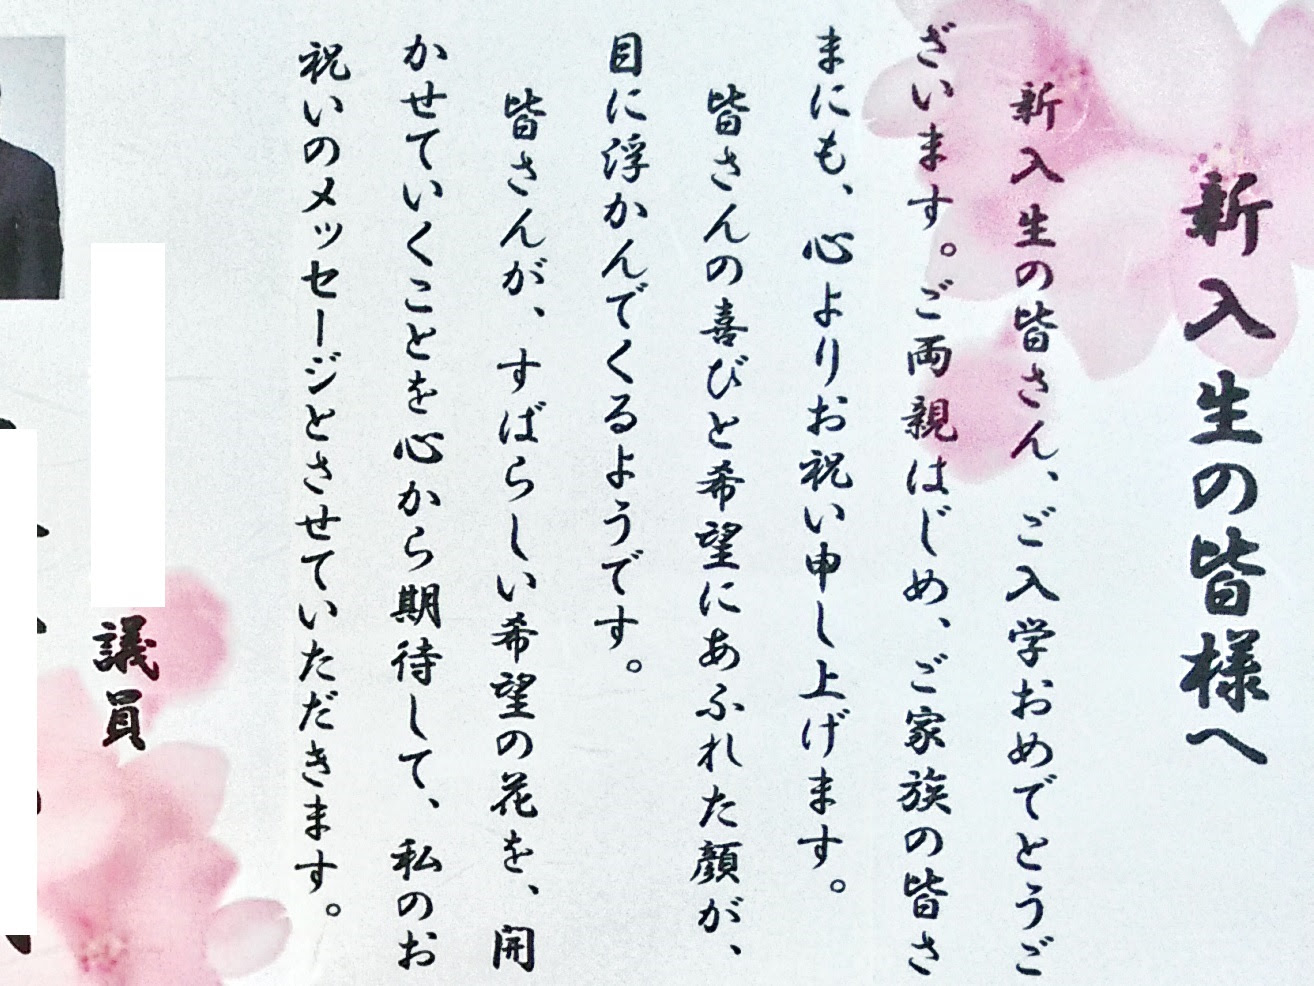 新入生の皆様へ
新入生の皆さん、ご入学おめでとうご
ざいます。ご両親はじめ、ご家族の皆さ
まにも、心よりお祝い申し上げます。
皆さんの喜びと希望にあふれた顔が、
目に浮かんでくるようです。
皆さんが、すばらしい希望の花を、開
かせていくことを心から期待して、私のお
祝いのメッセージとさせていただきます。
議員